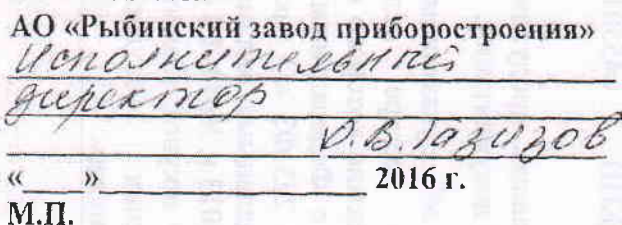 АО «Рыбинский завод приборостроения»
Исполнительный
директор
Газизов
«___»______________ 2016 г.
М.П.